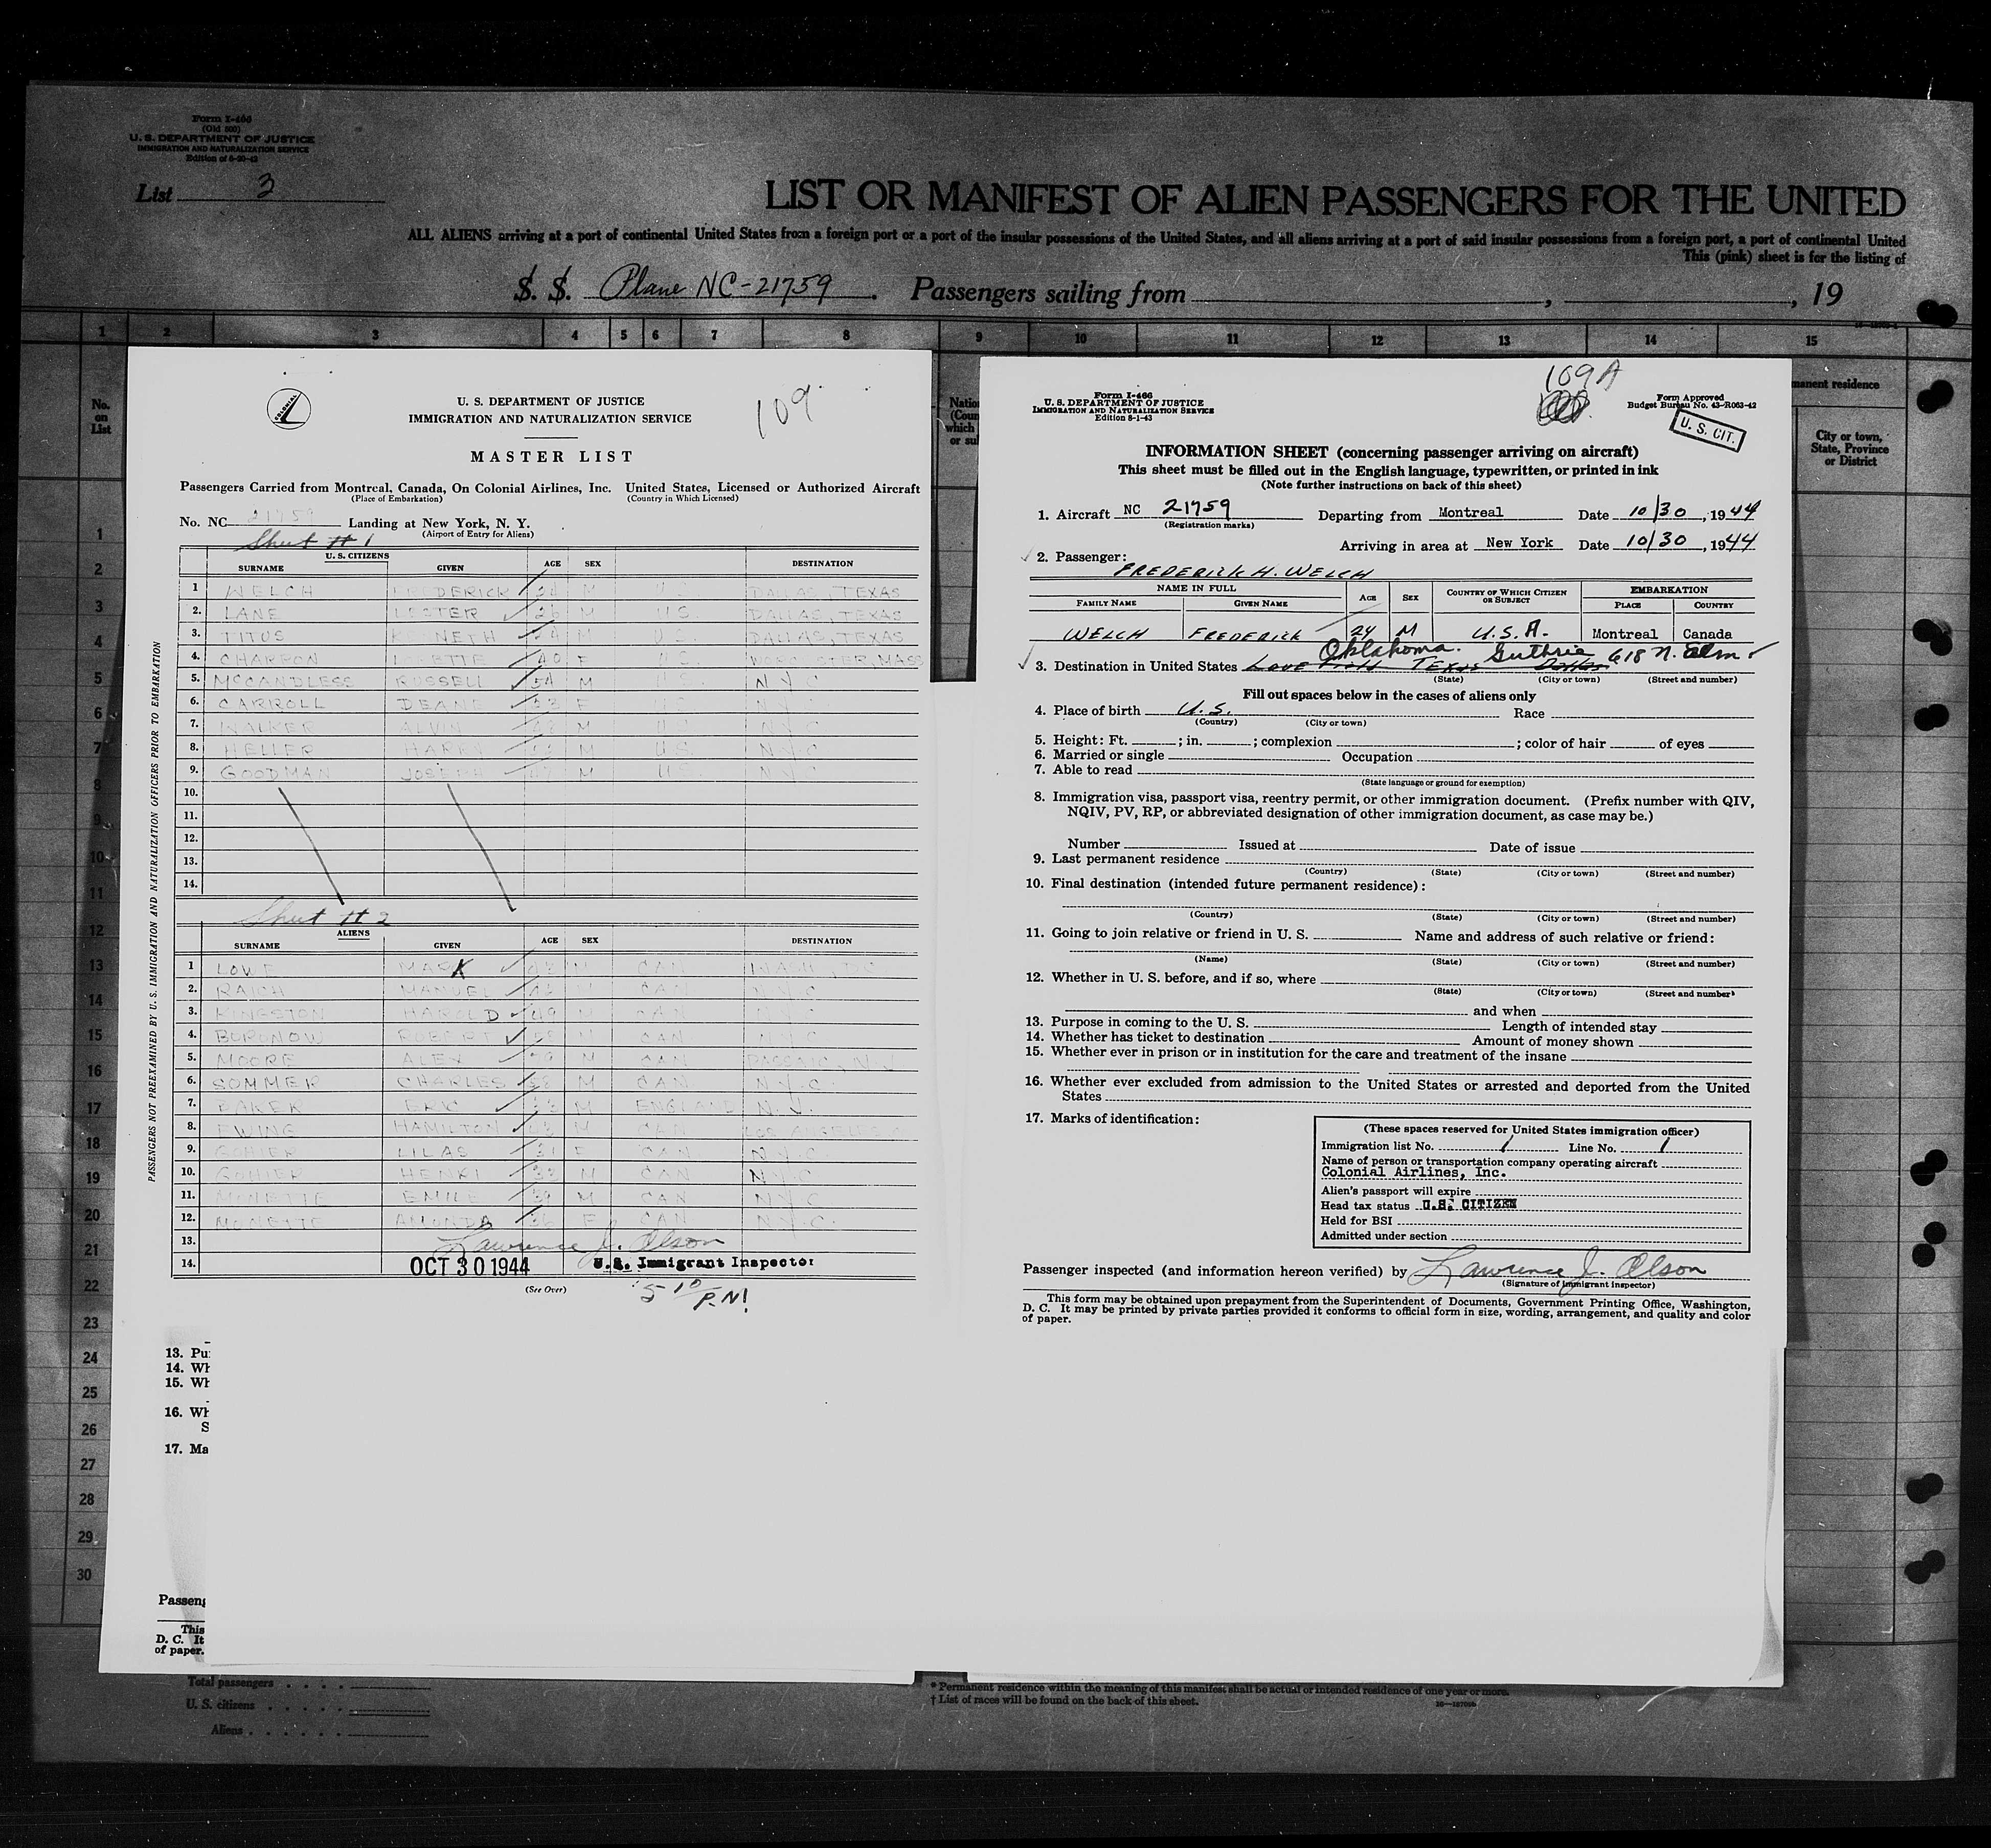 Form I-466
(Old 500)
U. S. DEPARTMENT OF JUSTICE
IMMIGRATION AND NATURALIZATION SERVICE
List 3
LIST OR MANIFEST OF ALIEN PASSENGERS FOR THE UNITED
ALL ALIENS arriving at a port of continental United States from a foreign port or a port of the insular possessions of the United States, and all aliens arriving at a port of said insular possessions from a foreign port, a port of continental United
This (pink) sheet is for the listing of
S. S. Plane NC-21759. Passengers sailing from , , 19
1 2 3 4 5 6 7 8 9 10 11 12 13 14 15
No. on List
manent residence
City or town, State, Province or District
COLONIAL
U. S. DEPARTMENT OF JUSTICE
IMMIGRATION AND NATURALIZATION SERVICE
109
MASTER LIST
Passengers Carried from Montreal, Canada, On Colonial Airlines, Inc. United States, Licensed or Authorized Aircraft
(Place of Embarkation) (Country in Which Licensed)
No. NC 21759 Landing at New York, N. Y.
(Airport of Entry for Aliens)
Sheet # 1
U. S. CITIZENS
SURNAME GIVEN AGE SEX DESTINATION
1 WELCH FREDERICK 24 M U.S. DALLAS, TEXAS
2. LANE LESTER M U.S. DALLAS, TEXAS
3. TITUS KENNETH M U.S. DALLAS, TEXAS
4. CHARRON 40 F U.S. WORCESTER, MASS
5. McCANDLESS RUSSELL 54 M U.S. N.Y.C
6. CARROLL DEANE F U.S. N.Y.C
7. WALKER ALVIN M U.S. N.Y.C
8. HELLER HARRY M U.S. N.Y.C
9. GOODMAN JOSEPH M U.S. N.Y.C
10.
11.
12.
13.
14.
Sheet # 2
ALIENS
SURNAME GIVEN AGE SEX DESTINATION
1 LOWE MARK M CAN WASH, DC
2. RAICH MANUEL M CAN N.Y.C
3. KINGSTON HAROLD 49 M CAN N.Y.C
4. BORONOW ROBERT M CAN N.Y.C
5. MOORE ALEX M CAN PASSAIC, N.J.
6. SOMMER CHARLES M CAN N.Y.C.
7. BAKER ERIC 33 M ENGLAND N.J.
8. EWING HAMILTON M CAN LOS ANGELES
9. GOHIER LILAS 31 F CAN N.Y.C.
10. GOHIER HENRI 33 M CAN N.Y.C
11. MONETTE EMILE 39 M CAN N.Y.C
12. MONETTE AMONDA 36 F CAN N.Y.C.
13. Lawrence J. Olson
14. OCT 30 1944 U.S. Immigrant Inspector
(See Over)
5 10 P.M.
PASSENGERS NOT PREEXAMINED BY U. S. IMMIGRATION AND NATURALIZATION OFFICERS PRIOR TO EMBARKATION
13. Pu
14. Wh
15. Wh
16. Wh
S
17. Ma
Passeng
This
D. C. It
of paper.
109A
Form I-466
U. S. DEPARTMENT OF JUSTICE
IMMIGRATION AND NATURALIZATION SERVICE
Edition 8-1-43
Form Approved
Budget Bureau No. 43-R063-42
U. S. CIT.
INFORMATION SHEET (concerning passenger arriving on aircraft)
This sheet must be filled out in the English language, typewritten, or printed in ink
(Note further instructions on back of this sheet)
1. Aircraft NC 21759 Departing from Montreal Date 10/30, 1944
(Registration marks)
Arriving in area at New York Date 10/30, 1944
2. Passenger:
FREDERICK H. WELCH
NAME IN FULL AGE SEX COUNTRY OF WHICH CITIZEN OR SUBJECT EMBARKATION
FAMILY NAME GIVEN NAME PLACE COUNTRY
WELCH FREDERICK 24 M U.S.A. Montreal Canada
Oklahoma. Guthrie 618 N. Elm
3. Destination in United States Love Field Texas Dallas
(State) (City or town) (Street and number)
Fill out spaces below in the cases of aliens only
4. Place of birth U.S. Race
(Country) (City or town)
5. Height: Ft. ; in. ; complexion ; color of hair of eyes
6. Married or single Occupation
7. Able to read
(State language or ground for exemption)
8. Immigration visa, passport visa, reentry permit, or other immigration document. (Prefix number with QIV,
NQIV, PV, RP, or abbreviated designation of other immigration document, as case may be.)
Number Issued at Date of issue
9. Last permanent residence
(Country) (State) (City or town) (Street and number)
10. Final destination (intended future permanent residence):
(Country) (State) (City or town) (Street and number)
11. Going to join relative or friend in U. S. Name and address of such relative or friend:
(Name) (State) (City or town) (Street and number)
12. Whether in U. S. before, and if so, where
(State) (City or town) (Street and number)
and when
13. Purpose in coming to the U. S. Length of intended stay
14. Whether has ticket to destination Amount of money shown
15. Whether ever in prison or in institution for the care and treatment of the insane
16. Whether ever excluded from admission to the United States or arrested and deported from the United
States
17. Marks of identification:
(These spaces reserved for United States immigration officer)
Immigration list No. 1 Line No. 1
Name of person or transportation company operating aircraft
Colonial Airlines, Inc.
Alien's passport will expire
Head tax status U.S. CITIZEN
Held for BSI
Admitted under section
Passenger inspected (and information hereon verified) by Lawrence J. Olson
(Signature of immigrant inspector)
This form may be obtained upon prepayment from the Superintendent of Documents, Government Printing Office, Washington,
D. C. It may be printed by private parties provided it conforms to official form in size, wording, arrangement, and quality and color
of paper.
1
2
3
4
5
6
7
8
9
10
11
12
13
14
15
16
17
18
19
20
21
22
23
24
25
26
27
28
29
30
Total passengers
U. S. citizens
Aliens
* Permanent residence within the meaning of this manifest shall be actual or intended residence of one year or more.
† List of races will be found on the back of this sheet.